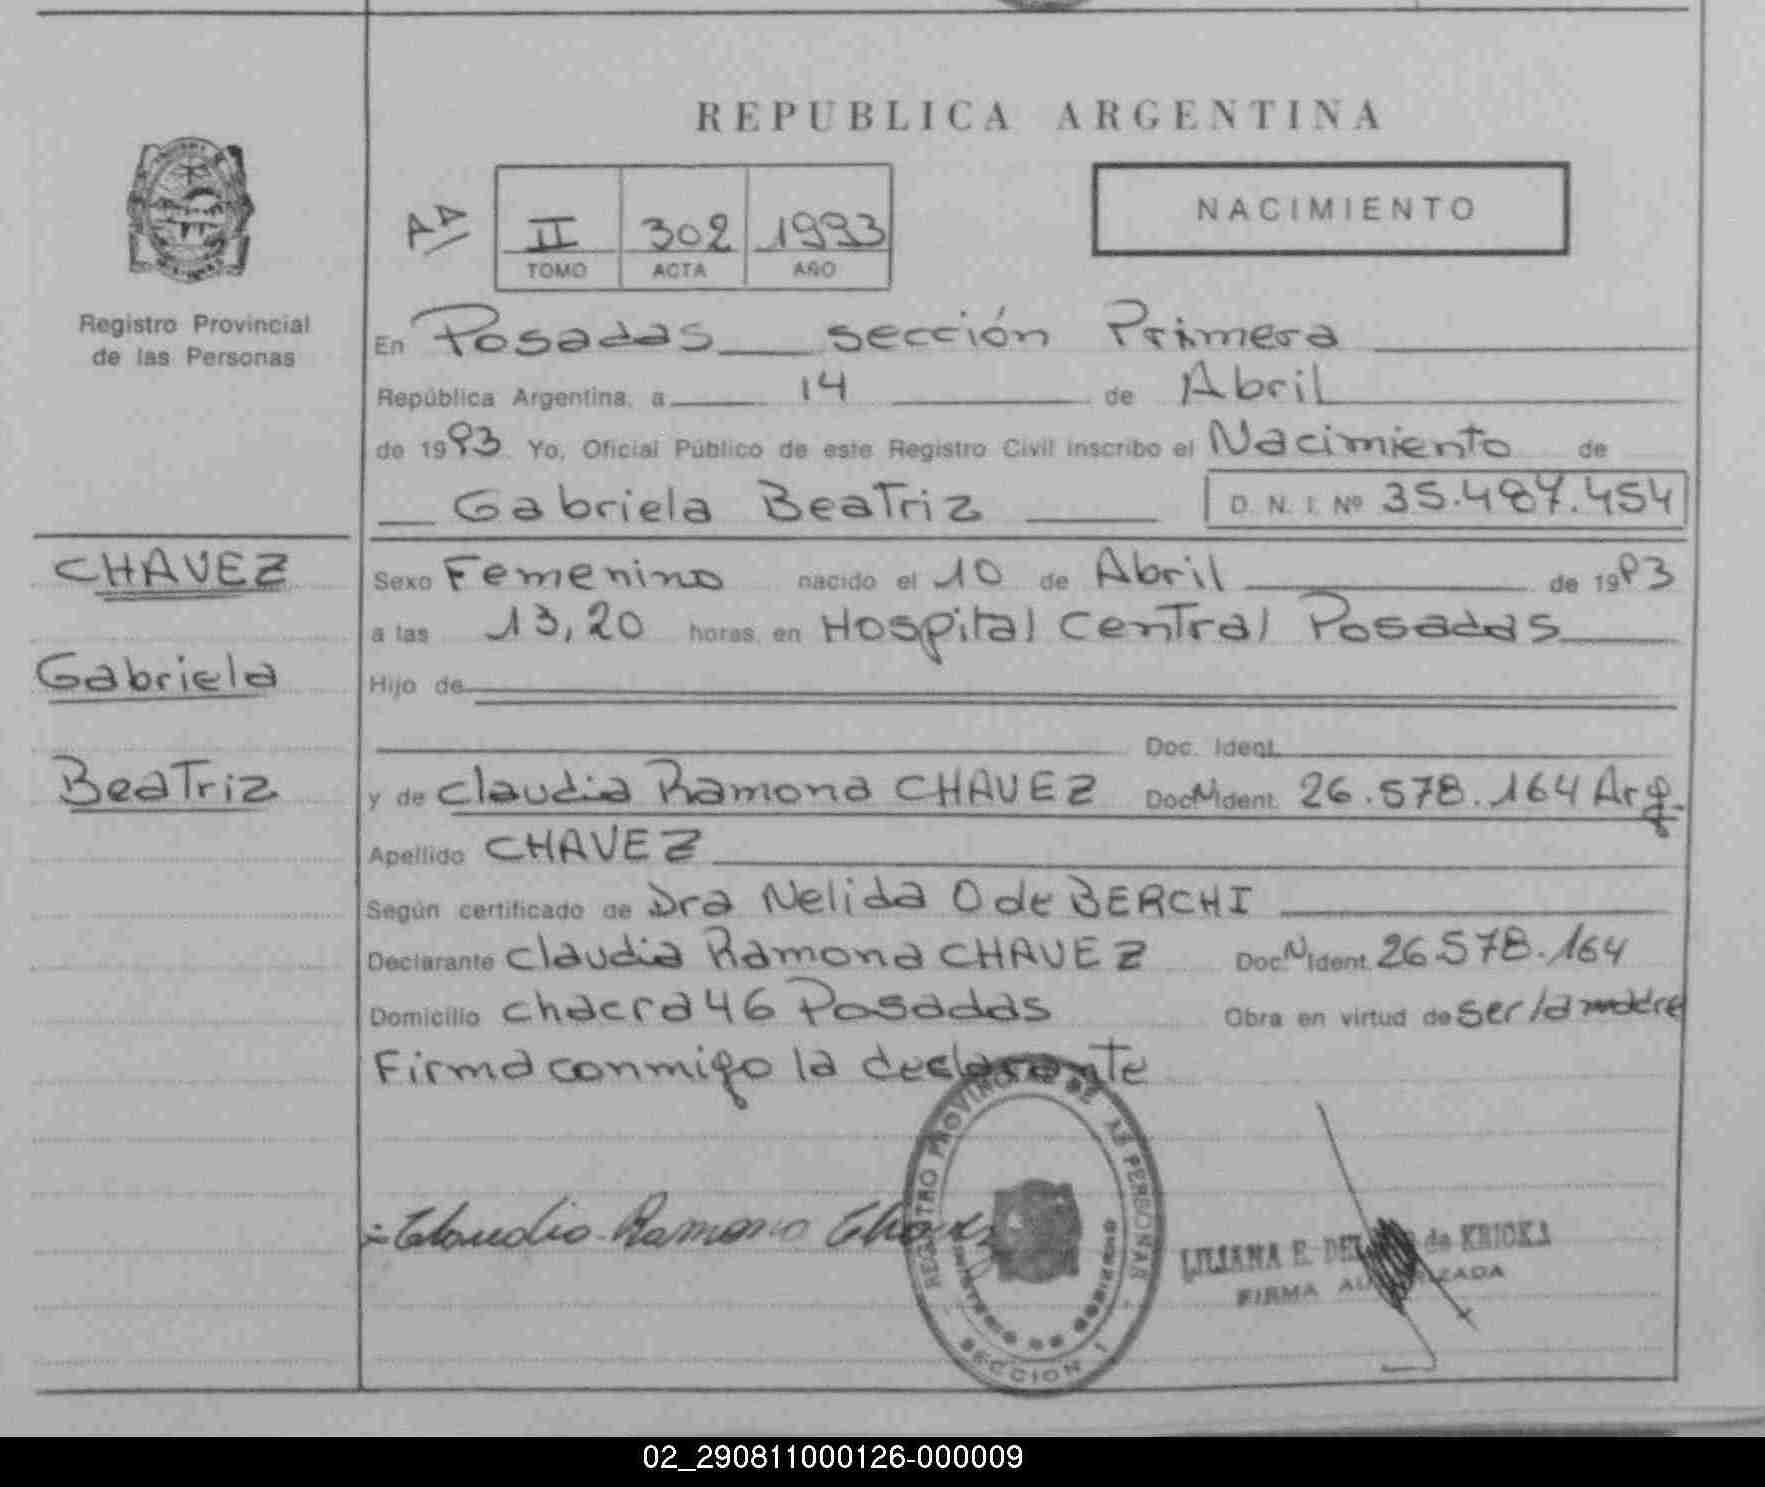 REPUBLICA ARGENTINA
NACIMIENTO
II 302 1993
TOMO ACTA AÑO
Registro Provincial
de las Personas
En Posadas sección Primera
República Argentina, a 14 de Abril
de 1993 Yo, Oficial Público de este Registro Civil inscribo el Nacimiento de
Gabriela Beatriz D. N. I. Nº 35.487.454
CHAVEZ
Gabriela
Beatriz
Sexo Femenino nacido el 10 de Abril de 1993
a las 13,20 horas, en Hospital Central Posadas
Hijo de
Doc. Ident.
y de Claudia Ramona CHAVEZ Doc. N Ident. 26.578.164 Arg.
Apellido CHAVEZ
Según certificado de Dra Nelida O de BERCHI
Declarante Claudia Ramona CHAVEZ Doc. N Ident. 26.578.164
Domicilio chacra 46 Posadas Obra en virtud de ser la madre
Firma conmigo la declarante
Claudia Ramona Chavez
REGISTRO PROVINCIAL DE LAS PERSONAS
MINISTERIO DE GOBIERNO
SECCION 1
LILIANA E. de KRICKA
FIRMA AUTORIZADA
02_290811000126-000009